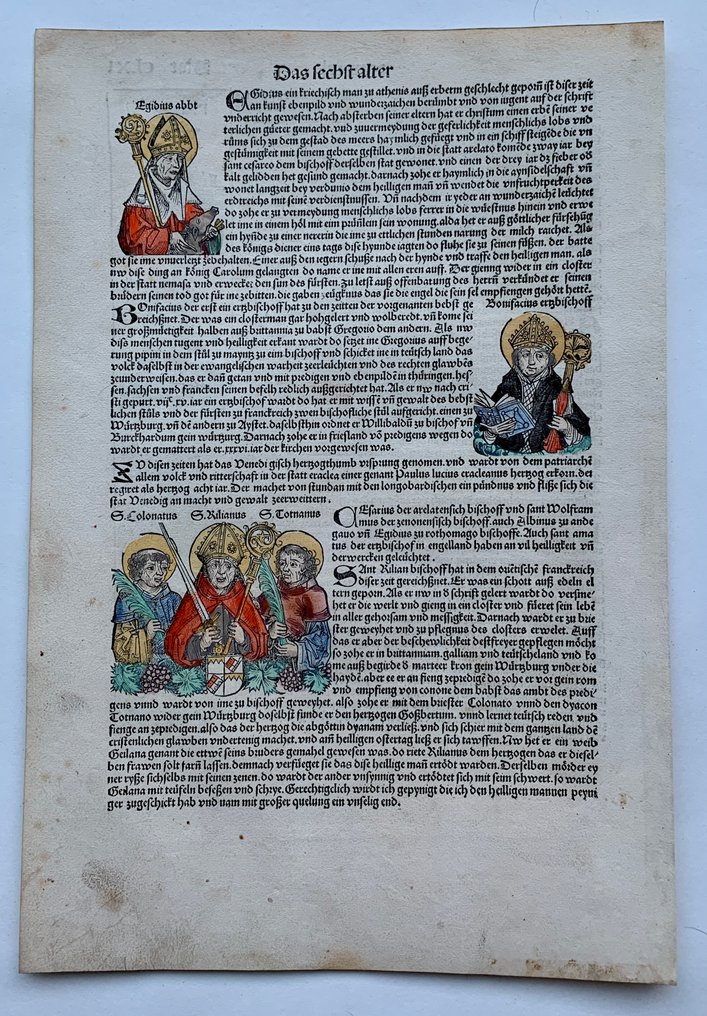 Das sechst alter
Egidius abbt
EGidius ein kriechisch man zu athenis auß erberm geschlecht geporn ist diser zeit
an kunst ebenpild vnd wunderzaichen berümbt vnd von iugent auf der schrift
vnderricht gewesen. Nach absterben seiner eltern hat er christum einen erben seiner ve
terlichen güeter gemacht. vnd zuuermeydung der geferlichkeit menschlichs lobs vnd
růms sich zu dem gestad des meers haymlich gefüegt vnd in ein schiff steigēde die vn
gestümigkeit mit seinem gebette gestillet. vnd in die statt arelato komēde zway iar bey
sant cesareo dem bischoff derselben stat gewonet. vnd einen der drey iar dz fieber oď
kalt gelidden het gesund gemacht. darnach zohe er haymlich in die aynsidelschafft vñ
wonet langzeit bey verdunio dem heilligen mañ vñ wendet die vnfruchtperkeit des
erdtreichs mit seinē verdienstnussen. Vñ nachdem ir yeder an wunderzaichē leüchtet
do zohe er zu vermeydung menschlichs lobs ferrer in die wüestnus hinein vnd erwe
let ime in einem höl mit eim prünlein sein wonung. alda het er auß götlicher fürsehūg
ein hyñde zu einer nererin die ime zu ettlichen stunden narung der milch raichet. Als
des königs diener eins tags dise hynnde iagten do fluhe sie zu seinen füßen. der batte
got sie ime vnuerletzt zebehalten. Einer auß den iegern schuße nach der hynde vnd traffe den heilligen man. als
nw dise ding an König Carolum gelangten do name er ine mit allen eren auff. Der gienng wider in ein closter
in der statt nemasa vnd erwecket den sun des fürsten. Zu letst auß offenbarung des herrñ verkündet er seinen
brüdern seinen tod got für ine zebitten. die gaben zeügknus das sie die engel die sein sel empfiengen gehört hettē.
Bonifacius ertzbischoff
BOnifacius der erst ein ertzbischoff hat zu den zeitten der vorgenanten bebst ge
reichßnet. Der was ein closterman gar hohgelert vnd wolberedt. vñ kome sei
ner großmüetigkeit halben auß brittannia zu babst Gregorio dem andern. Als nw
diss menschen tugent vnd heiligkeit erkant wardt do setzet ine Gregorius auff bege
rung pipini in dem stůl zu mayntz zu eim bischoff vnd schicket ine in teütsch land das
volck daselbst in der ewangelischen warheit zeerleüchten vnd des rechten glawbēs
zeunderweisen. das er dañ getan vnd mit predigen vnd ebenpildē in thüringen. hes
sen. sachsen vnd francken seinen befelh redlich außgerichtet hat. Als er nw nach cri
sti gepurt. vijᶜ.xv. iar ein ertzbischof wardt do hat er mit wissē vñ gewalt des bebst
lichen stůls vnd der fürsten zu franckreich zwen bischofliche stůl aufgericht. einen zu
Würtzburg. vñ dē andern zu Aystet. daselbsthin ordnet er Willibaldū zu bischof vñ
Burckhardum gein würtzburg. Darnach zohe er in friesland vō predigens wegen do
wardt er gemattert als er. xxxvi. iar der kirchen vorgewesen was.
ZV disen zeiten hat das Venedigisch hertzogthumb vrsprung genomen. vnd wardt von dem patriarchē
allem volck vnd ritterschaft in der statt eraclea einer genant Paulus lucius eracleanus hertzog erkorn. der
regiret als hertzog acht iar. Der machet von stundan mit den longobardischen ein pündnus vnd fliße sich die
stat Venedig an macht vnd gewalt zeerweittern.
S. Colonatus S. Kilianus S. Totnanus
CEsarius der arelatensisch bischoff vnd sant Wolfram
mus der zenonensisch bischoff. auch Albinus zu ande
gauo vñ Egidius zu rothomago bischoffe. Auch sant ama
tus der ertzbischof in engelland haben an vil heilligkeit vñ
derwercken geleüchtet.
SAnt Kilian bischoff hat in dem ostetischē franckreich
diser zeit gereichßnet. Er was ein schott auß edeln el
tern geporn. Als er nw in ď schrift gelert wardt do versme
het er die werlt vnd gieng in ein closter vnd fůeret sein lebē
in aller gehorsam vnd messigkeit. Darnach wardt er zu brie
ster geweyhet vnd zu pflegnus des closters erwelet. Auff
das er aber der beschewlichkeit destfreyer gepflegen möcht
so zohe er in brittanniam. galliam vnd teütscheland vnd ko
me auß begirde ď marterer kron gein Würtzburg vnder die
haydē. aber ee er an fieng zepredigē do zohe er vor gein rom
vnd empfieng von conone dem babst das ambt des predi
gens vnnd wardt von ime zu bischoff geweyhet. also zohe er mit dem briester Colonato vnnd den dyacon
Totnano wider gein Würtzburg doselbst funde er den hertzogen Goßbertum. vnnd lernet teütsch reden vnd
fienge an zepredigen. also das der hertzog die abgöttin dyanam verließ. vnd sich schier mit dem gantzen land dē
cristenlichen glawben vndertenig machet. vnd am heilligen ostertag ließ er sich tawffen. Nw het er ein weib
Geilana genant die ettwē seins bruders gemahel gewesen was. do riete Kilianus dem hertzogen das er diesel
ben frawen solt farñ lassen. demnach verfüeget sie das dise heillige man ertödt warden. Derselben mörder ey
ner ryße sichselbs mit seinen zenen. do wardt der ander vnsynnig vnd ertödtet sich mit seim schwert. so wardt
Geilana mit teüfeln beseßen vnd schrye. Gerechtigclich wirdt ich gepynigt die ich den heilligen mannen peyni
ger zugeschickt hab vnd nam mit großer quelung ein vnselig end.